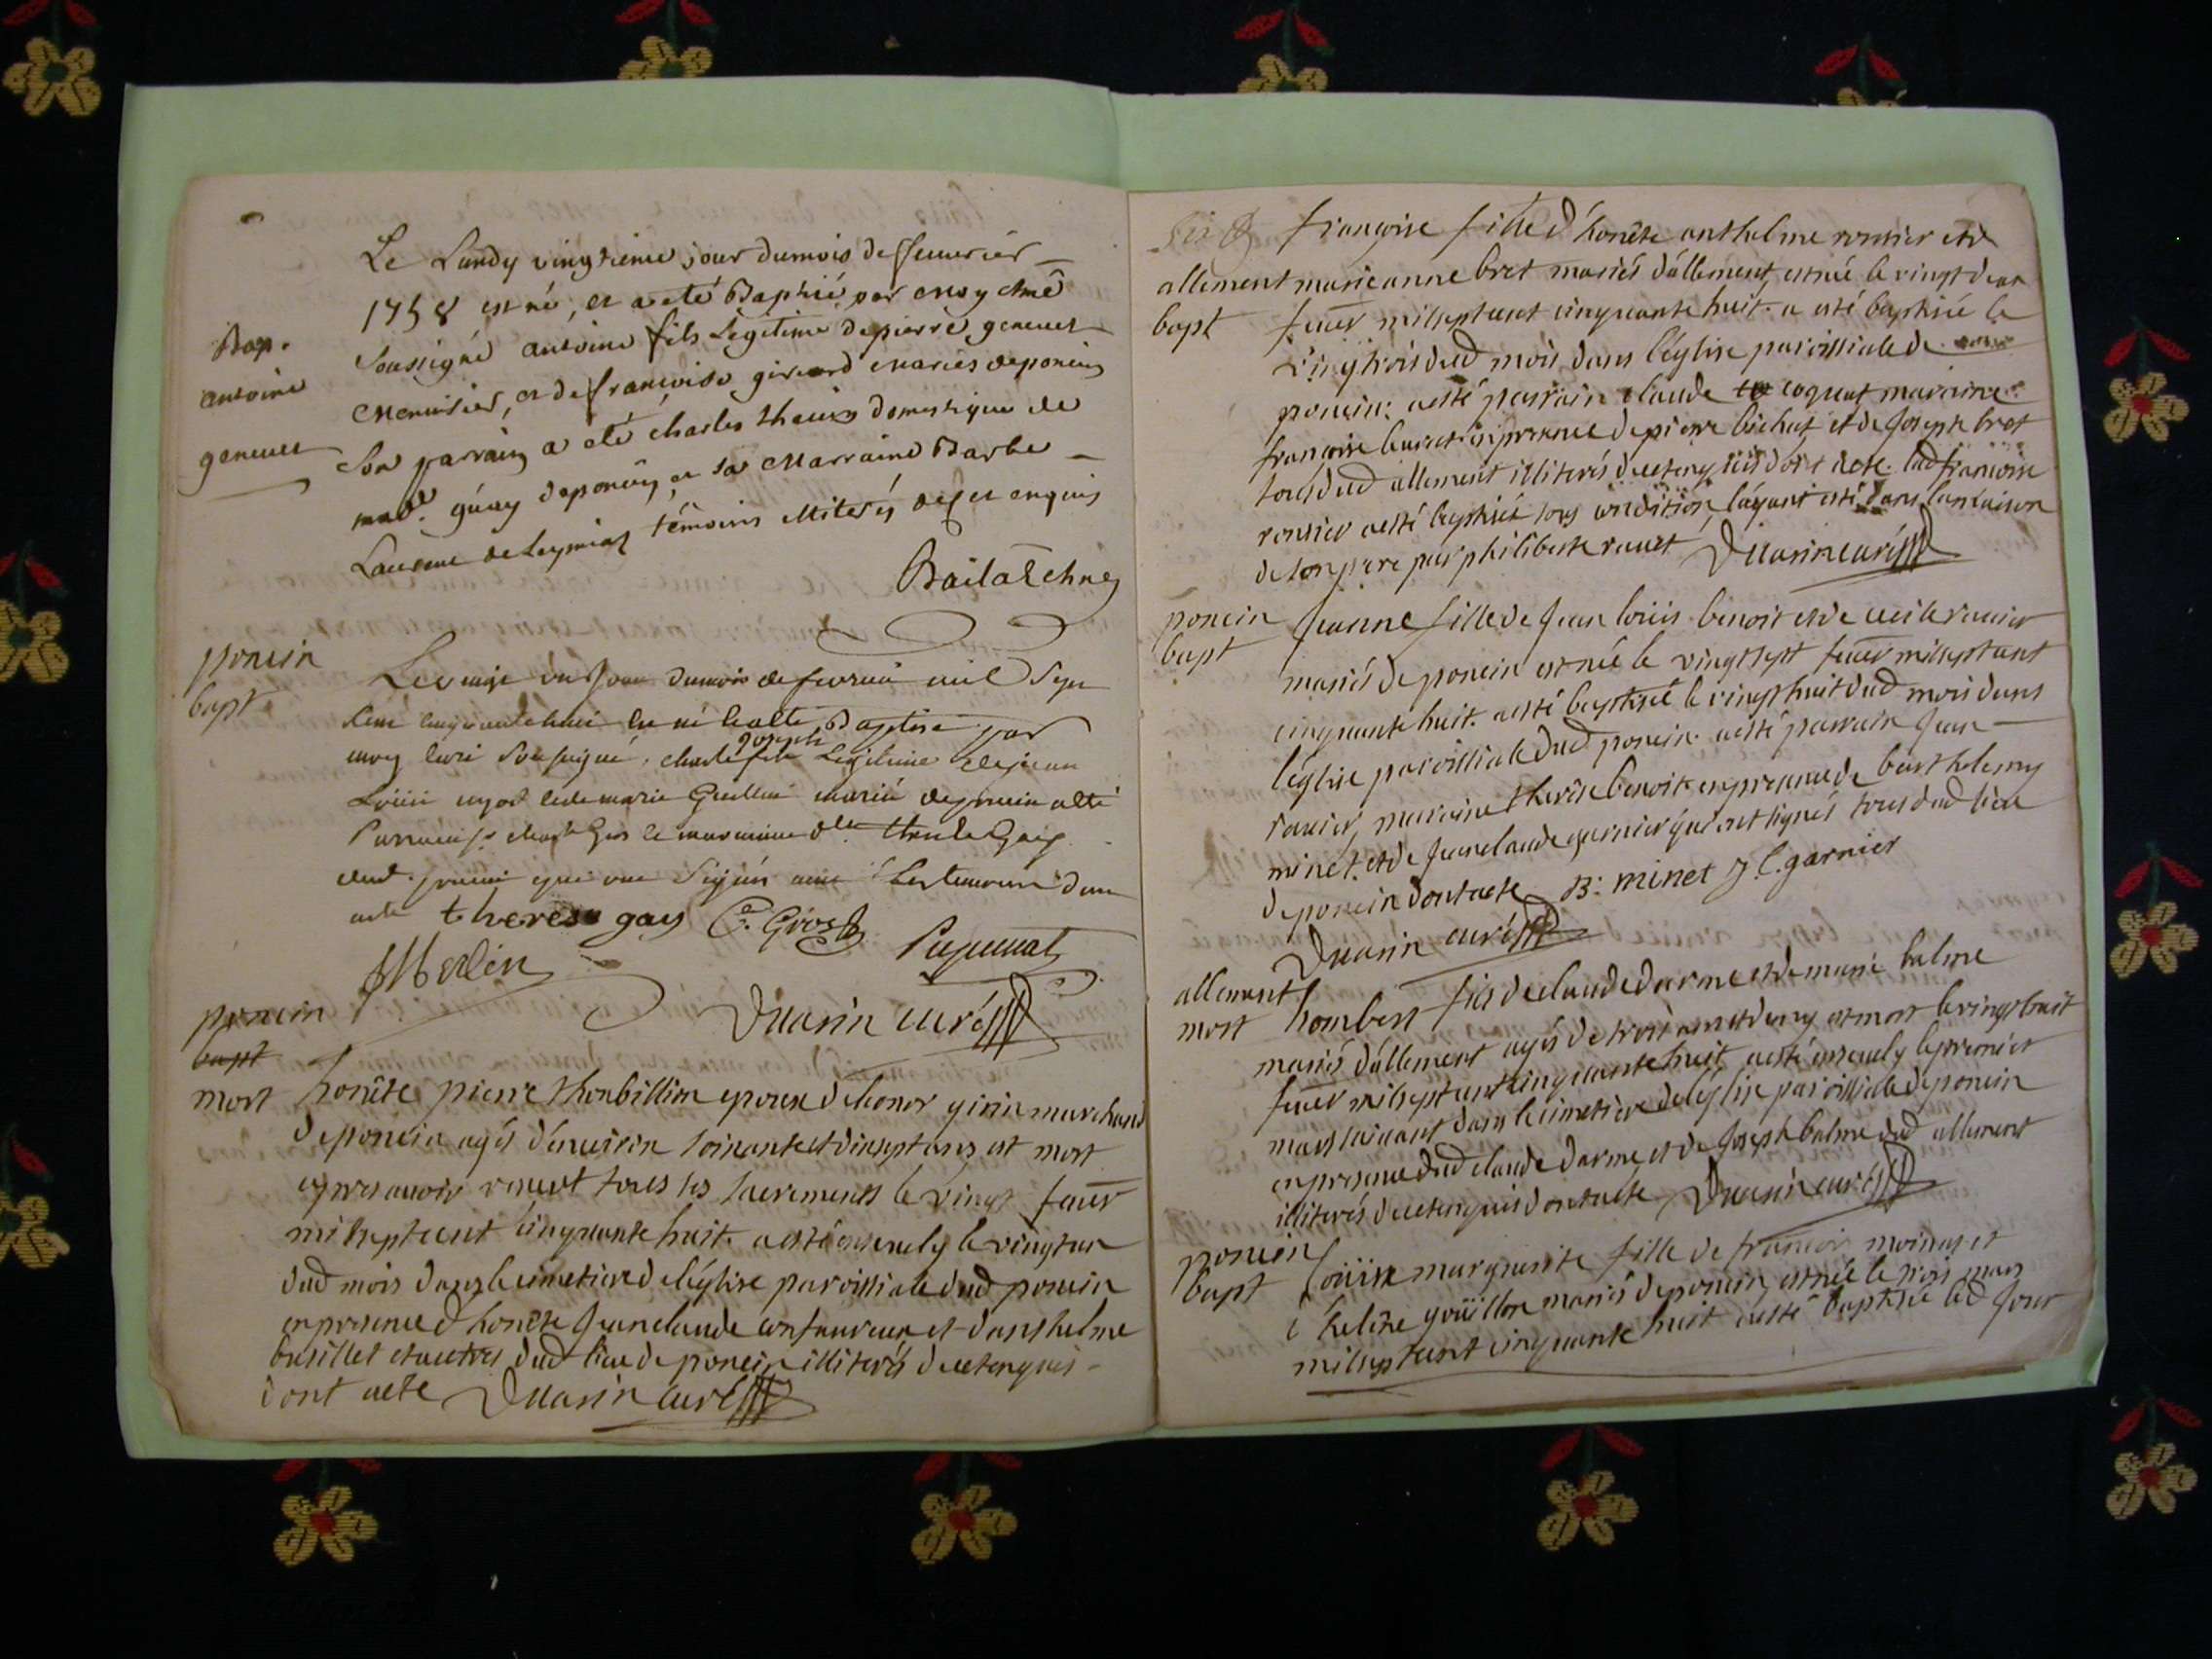 Le Lundy vingtieme jour du mois de feuurier
1758 est né, et a eté Baptisé par moy
Bap.
Soussigné antoine fils Legitime de pierre geneuet
antoine
Menuisier, et de francoise girard mariés de poncin
geneuet
Son parrain a eté charles domestique de
mad.e guay de poncin, et sa Marraine Barbe
de Leymiat témoins illiterés de ce enquis
poncin
bapt
Le vingt un jour du mois de feurié mil sept
cent cinquante huit est né et a esté Baptisé par
joseph
moy curé Soussigné, charle fils Legitime de jean
Louis et de marie marié de poncin a esté
Parrain sr. charle Gros et marraine dlle
dud. poncin qui ont Signés auec Les temoins dont
acte therese gay C. Gros
JMerlin
Duarin curé
poncin
bapt
mort
honête pierre Thorbillion epoux de leonor girin marchand
de poncin agés d'enuiron soixante et dixsept ans est mort
apres auoir receut tous ses sacrements le vingt feuer
milsept cent cinquante huit a esté enseuely le vingt un
dud mois dans le cimetiere de léglise paroissiale dud poncin
en presence d'honête Jean claude et d'anthelme
busillet et autres dud lieu de poncin illiterés de ce enquis
dont acte Duarin curé
francoise fille d'honête anthelme rousier et de
allement marieanne bret mariés d'allement, est née le vingt deux
bapt feuer milsept cent cinquante huit. a esté baptisée le
vingt trois dud mois dans l'église paroissiale de
poncin. a esté parrain claude coquet marraine
francoise en presence de pierre bichat et de Joseph bret
tous dud allement illiterés de ce enquis dont acte. lad francoise
rousier a esté baptisée sous condition, l'ayant esté dans la maison
de son pere par philiberte rauet Duarin curé
poncin Jeanne fille de Jean loüis benoit et de cecile rauier
bapt
mariés de poncin est née le vingt sept feuer milsept cent
cinquante huit. a esté baptisée le vingt huit dud mois dans
l'église paroissiale dud poncin. a esté parrain Jean
rauier, marraine therese benoit en presence de barthelemy
minet. et de Jean claude garnier qui ont signés tous dud lieu
de poncin dont acte B: minet J.C. garnier
Duarin curé
allement
mort hombert fils de claude darme et de marie balme
mariés d'allement agés de trois ans et demy est mort le vingt huit
feuer milsept cent cinquante huit a esté enseuely le premier
mars suiuant dans le cimetiere de léglise paroissiale de poncin
en presence dud claude darme et de Joseph balme dud allement
illiterés de ce enquis dont acte Duarin curé
poncin
bapt Loüise marguerite fille de francois moinat et
d'helene goüillon mariés de poncin, est née le trois mars
milsept cent cinquante huit a esté baptisée led Jour